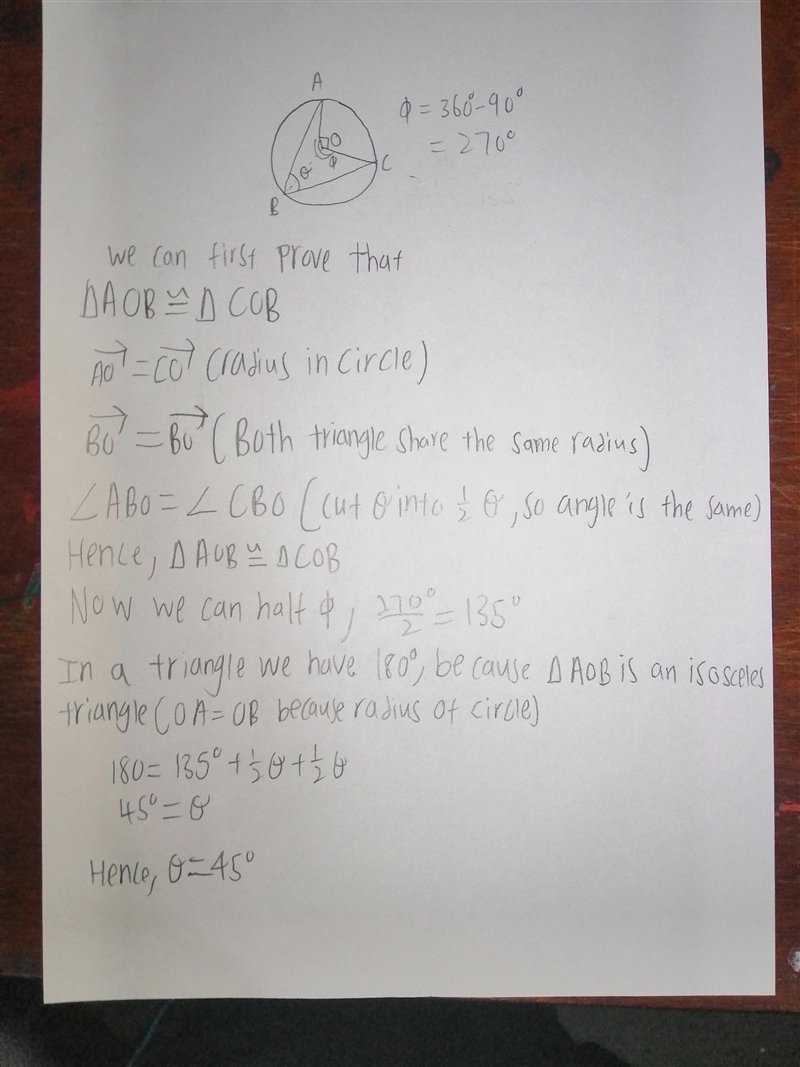 A
O
C
B
θ
φ
φ = 360° - 90°
= 270°
We can first prove that
ΔAOB ≅ Δ COB
AO→ = CO→ (radius in circle)
BO→ = BO→ (Both triangle share the same radius)
∠ABO = ∠CBO (cut θ into 1/2 θ, so angle is the same)
Hence, ΔAOB ≅ ΔCOB
Now we can half φ, 270°/2 = 135°
In a triangle we have 180°, because ΔAOB is an isosceles
triangle (OA = OB because radius of circle)
180 = 135° + 1/2 θ + 1/2 θ
45° = θ
Hence, θ = 45°